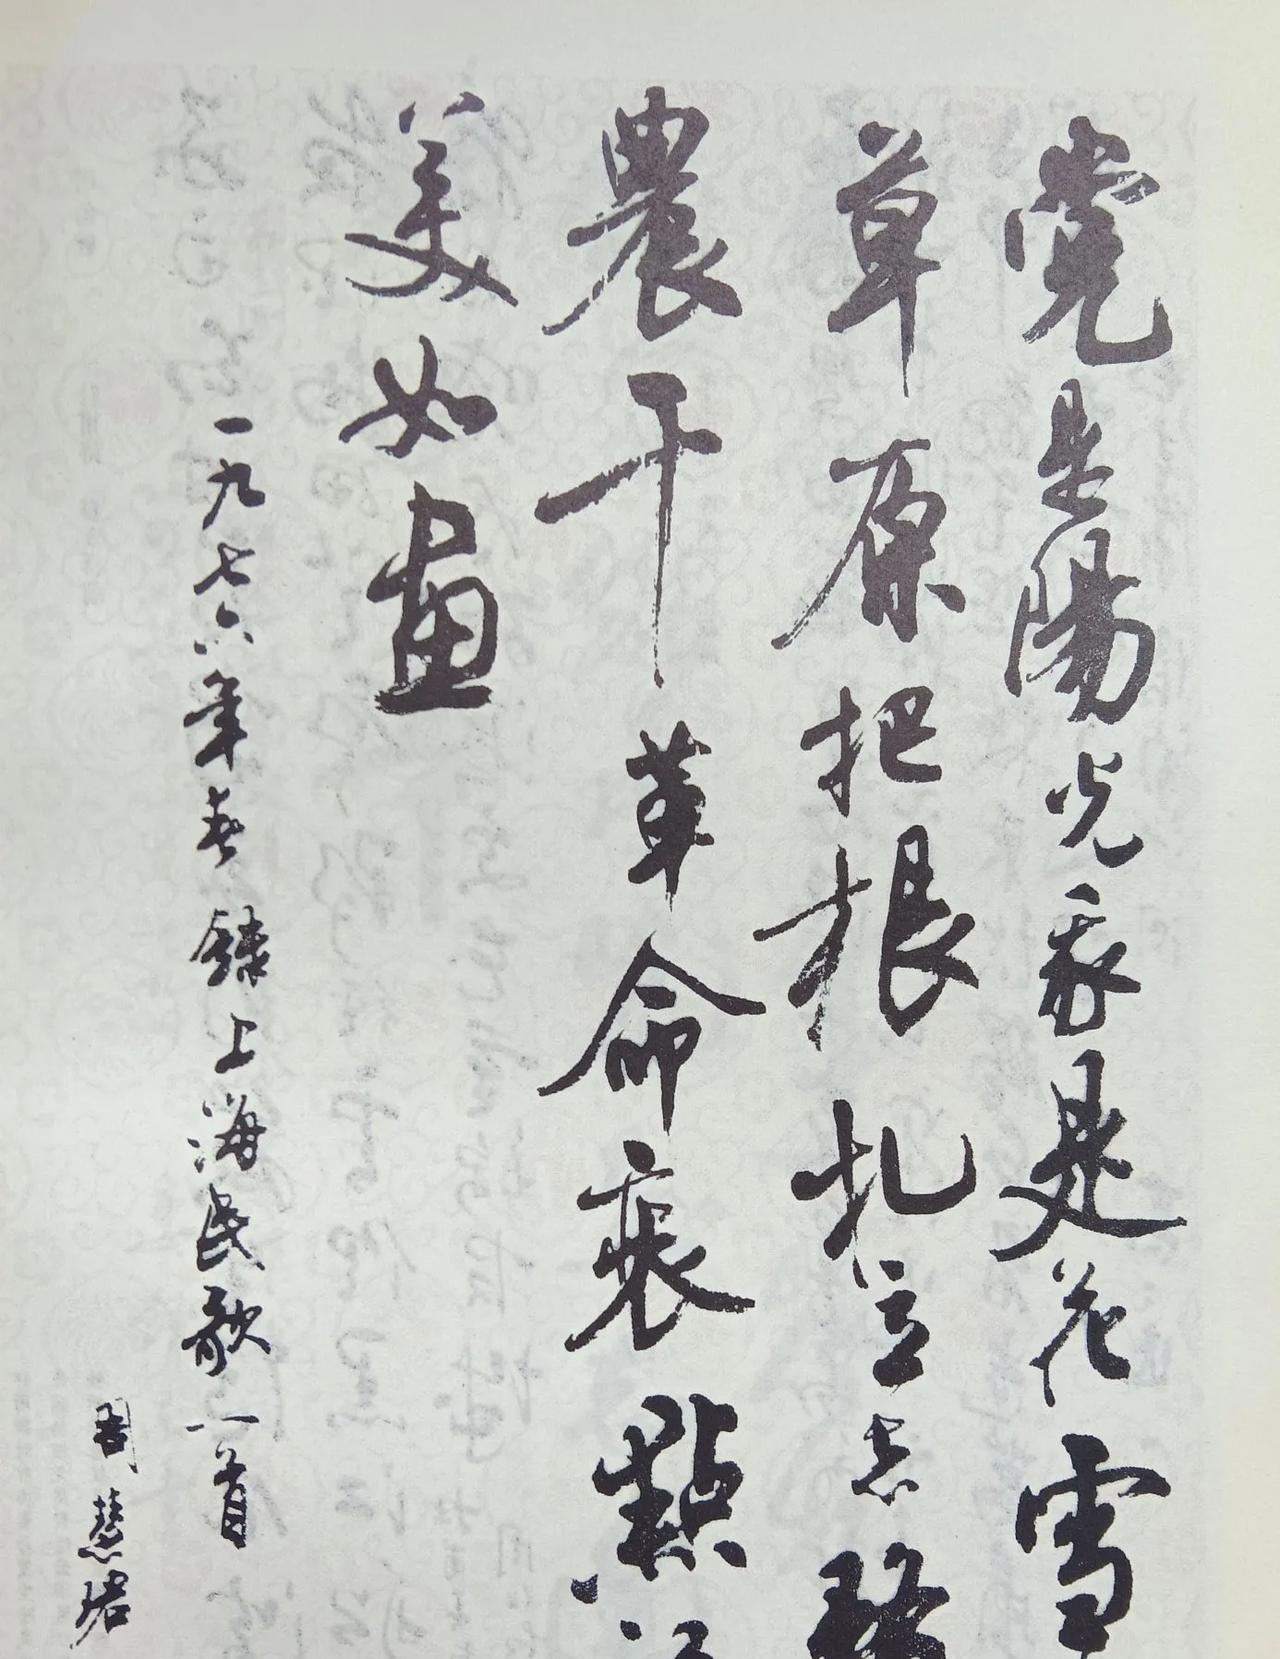 党是陽光我是花雪
草原把根扎立志務
農干革命衷點
美如畫
一九七六年春錄上海民歌一首
周慧珺